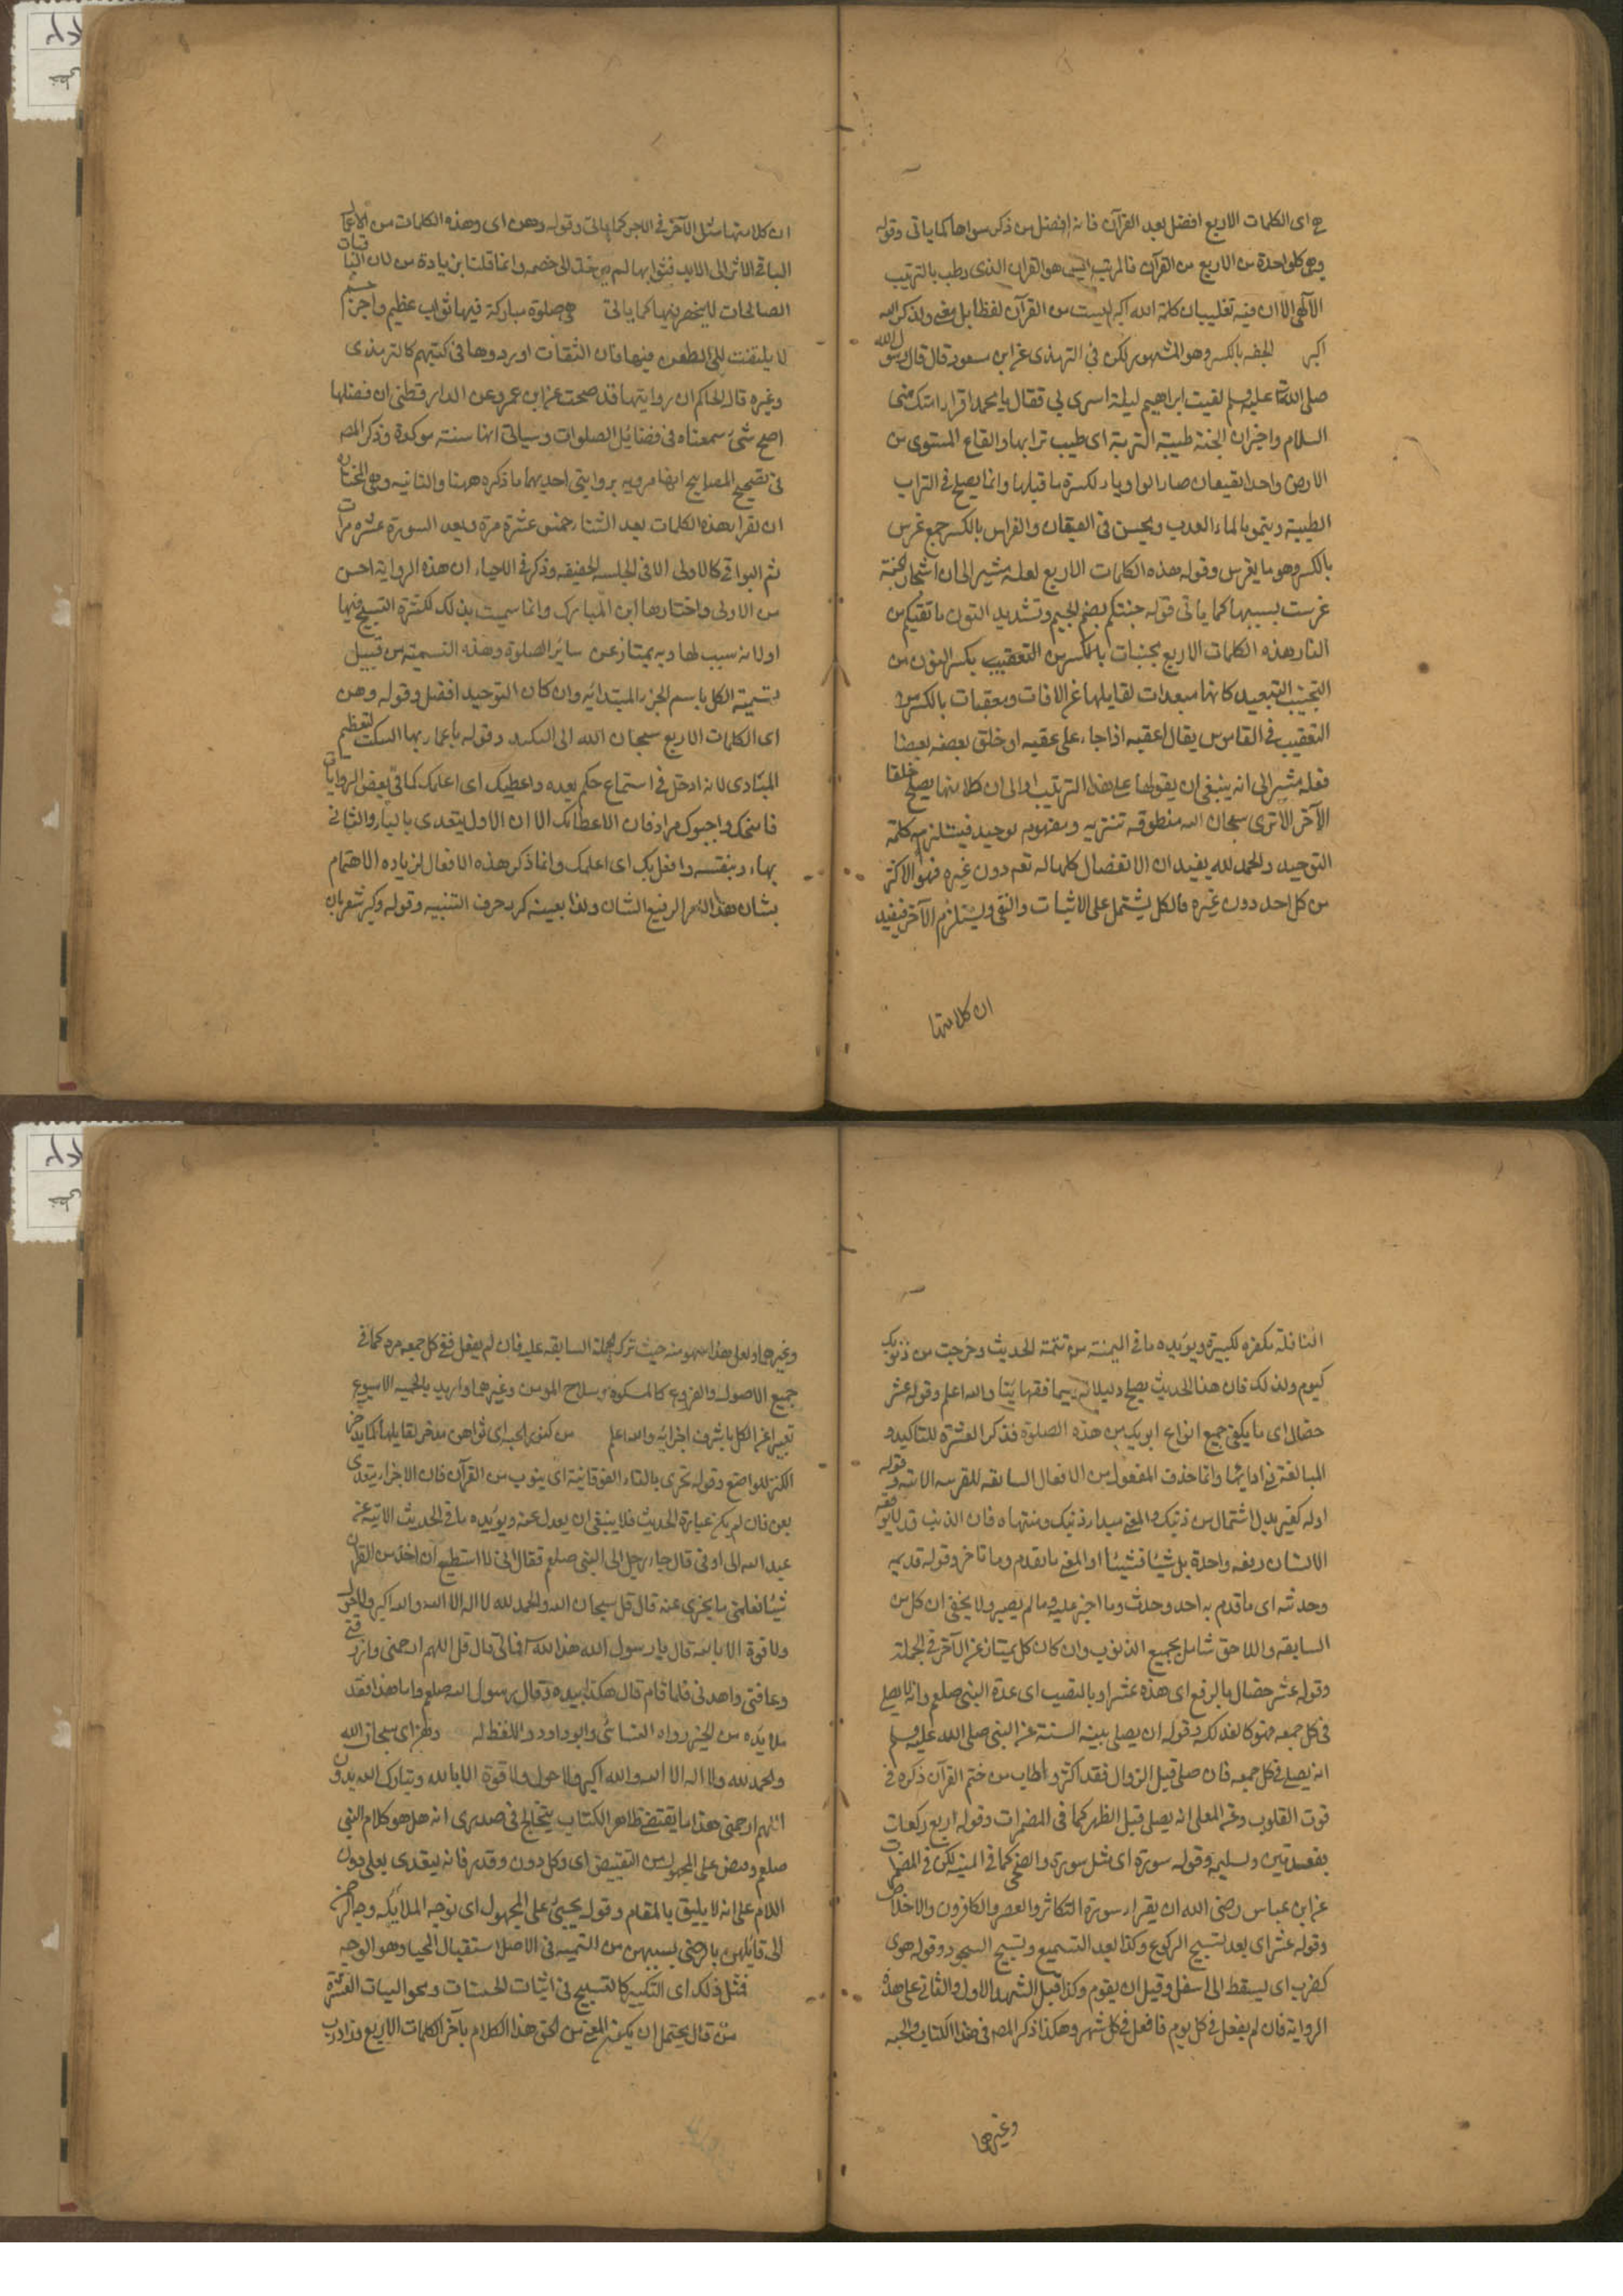 هي اى الكلمات الاربع افضل بعد القرآن فانه افضل من ذكر سواها كما ياتى وقوله
وهى كلواحدة من الاربع من القرآن فالمرتبة ليس هو القران الذى رطب بالترتيب
الآلهى الا ان فيه تغليبا ن كلمة الله اكبر ليست من القرآن لفظا بل معنى ولذكر الله
اكبر الجفه بالكسر وهو المشهور لكن فى الترمذى عن ابن مسعود قال قال رسول الله
صلى الله تعا عليه وسلم لقيت ابراهيم ليلة اسرى بى فقال يا محمد اقرا امتك منى
السلام واخبر ان الجنة طيبة التربة اى طيب ترابها والقاع المستوى من
الارض واحد القيعان صار الواو ياء لكسرة ما قبلها وانما يصلح فى التراب
الطيبة وينمو بالماء العذب ويحسن فى القيعان والغراس بالكسر جمع غرس
بالكسر وهو ما يغرس وقوله هذه الكلمات الاربع لعله مشير الى ان اشجار الجنة
غرست بسببها كما ياتى قوله جنتكم بضم الجيم وتشديد النون ما تقيكم من
النار هذه الكلمات الاربع مجنبات بالكسر من التعقيب بكسر النون من
التجنيب التبعيد كانها مبعدات لقايلها عن الافات ومعقبات بالكسر من
التعقيب فى القاموس يقال اعقبه اذا جاء على عقبه او خلق بعضه بعضا
فعله مشير الى انه ينبغى ان يقولها على هذا الترتيب او الى ان كلا منها يصلح خلفا
الآخر الا ترى سبحان الله منطوقه تنزيه ومفهومه توحيد فيستلزم كلمة
التوحيد والحمد لله يفيد ان الانفضال كلها له تعم دون غيره فهو الاكثر
من كل احد دون غيره فالكل يشتمل على الاثبات والنفى ويستلزم الآخر فيفيد
ان كلا منها
ان كلا منها مثل الآخر فى الاجر كما ياتى وقوله وهن اى وهذه الكلمات من الاعمال
الباقى الاثر الى الابد فثوابها لم يدخل الى خصمه وانما قلنا بزيادة من لان الباقيات
الصالحات لا ينحصر فيها كما ياتى هى صلوة مباركة فيها ثواب عظيم واجر جسيم
لا يلتفت الى الطعن فيها فان الثقات اوردوها فى كتبهم كالترمذى
وغيره قال الحاكم ان روايتها قد صحت عن ابن عمر وعن الدارقطنى ان فضلها
اصح شئ سمعناه فى فضائل الصلوات وسياتى انها سنة موكدة وذكر المص
فى تصحيح المصابيح انها مرويه بروايتى احديهما ما ذكره ههنا والثانيه وهى المختار
ان يقرا هذه الكلمات بعد الثناء خمس عشرة مرة وبعد السورة عشر مرات
ثم البواقى كالاولى الا فى الجلسه الخفيفه وذكر فى الاحياء ان هذه الرواية احسن
من الاولى واختارها ابن المبارك وانما سميت بذلك لكثرة التسبيح فيها
اولانه سبب لها وبه يمتاز عن سائر الصلوة وهذه التسمية من قبيل
تسمية الكل باسم الجزء المبتدائيه وان كان التوحيد افضل وقوله وهن
اى الكلمات الاربع سبحان الله الى وقوله يا عمار بها السكت لتعظيم
المنادى لانه ادخل فى استماع حكم بعده واعطيك اى اعلمك كما فى بعض الروايات
فامنحك واحبوك مرادفان لاعطائك الا ان الاول يتعدى بالباء والثانى
بهاء وبنفسه وافعل بك اى اعلمك وانما ذكر هذه الافعال لزياده الاهتمام
بشان هذا الامر الرفيع الشان ولذا بعينه كرد حرف التنبيه وقوله وكبر شعر بان
النافلة مكفره لكبيرة ويؤيده ما فى المنية من تتمة الحديث وخرجت من ذنوبك
كيوم ولدتك فان هذا الحديث يصلح دليلا والله اعلم وقوله عشر
خصال اى ما يكفى جميع انواع ابويك من هذه الصلوة فذكر العشرة للتاكيد و
المبالغة فى ادائها وانما حذف المفعول من الافعال السابقه للقرينه الاتيه وقوله
اوله كغيره بدل اشتمال من ذنبك والمعنى مبدا ذنبك ومنتهاه فان الذنب قد لا يوقعه
الانسان دفعه واحدة بل شيئا فشيئا او المعنى ما تقدم وما تاخر وقوله قديمه
وحدثه اى ما قدم به احد وحدث وما اخبر عليه وما لم يصير ولا يخفى ان كل من
السابقه واللاحق شامل بجميع الذنوب وان كان كل يمتاز عن الآخر فى الجملة
وقوله عشر خصال بالرفع اى هذه عشر او بالنصب اى عدة النبى صلعم وانه لا يصلى
فى كل جمعه فهو كالفذلكه وقوله ان يصلى بنية السنة عن النبى صلى الله عليه وسلم
انه يصلى فى كل جمعه فان صلى قبل الزوال فقد اكثر واطاب من ختم القرآن ذكره فى
قوت القلوب وعن المعلى انه يصلى قبل الظهر كما فى المضمرات وقوله اربع ركعات
بقعدتين وتسليم وقوله سورة اى مثل سورة والضحى كما فى المنيه لكن فى المضمرات
عن ابن عباس رضى الله ان يقرا سورة التكاثر والعصر والكافرون والاخلاص
وقوله عشرا اى بعد تسبيح الركوع وكذا بعد التسميع وتسبيح السجود وقوله هوى
كضرب اى يسقط الى اسفل وقبل ان يقوم وكذا قبل التشهد الاول والثانى على هذه
الرواية فان لم يفعل فى كل يوم فافعل فى كل شهر وهكذا ذكر المص فى هذا الكتاب والجبه
وغيرها
وغيرهما ولعل هذا سهو منه حيث ترك الجملة السابقه عليه فان لم يفعل ففى كل جمعه مره كما فى
جميع الاصول والفروع كالمشكوة وسلاح المومن وغيرهما واريد بالجمعه الاسبوع
تعبيرا عن الكل باشرف اجزائه والله اعلم من كنوز الجنه اى ثواهن مدخر لقايلها كما يدخر
الكنز للواضع وقوله تجزى بالتاء الفوقانية اى ينوب من القرآن فان الاجزاء يتعدى
بعن فان لم يكن عبارة الحديث فلا ينبغى ان يعدل عنه ويؤيده ما فى الحديث الاتيه عن
عبد الله الى اوفى قال جاء رجل الى النبى صلعم فقال انى لا استطيع ان اخذ من القران
شيئا فعلمنى ما يجزى عنه قال قل سبحان الله والحمد لله لا اله الا الله والله اكبر ولا حول
ولا قوة الا بالله قال يا رسول الله هذا لله فما لى قال قل اللهم ارحمنى وارزقنى
وعافنى واهدنى فلما قام قال هكذا بيده فقال رسول الله صلعم واما هذا فقد
ملا يده من الخير رواه النسائى وابو داود واللفظ له وهن اى سبحان الله
والحمد لله ولا اله الا الله والله اكبر ولا حول ولا قوة الا بالله وتبارك الله بدون
اللهم ارحمنى هذا ما يقتضى ظاهر الكتاب يتخالج فى صدرى انه هل هو كلام النبى
صلعم وقبض على المجهول من التقبيض اى وكل دون وقدر فانه ليتعدى بعلى دون
اللام على انه لا يليق بالمقام وقوله يجيئ على المجهول اى توجه الملايكه وجه الرحمن
الى قايلهن بالرضى بسببهن من التحيه فى الاصل استقبال المحيا وهو الوجه
فمثل ذلك اى التكبير كالتسبيح فى اثبات الحسنات ومحو السيات العشرة
من قال يحتمل ان يكون المعنى من الحق هذا الكلام بآخر الكلمات الاربع